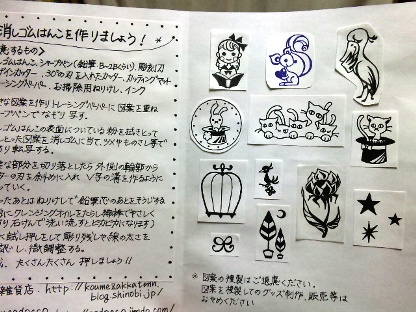 消しゴムはんこを作りましょう!
消しゴムはんこ、シャープペン(鉛筆 B~2Bくらい)、彫刻刀
デザインカッター、30°の刃を入れたカッター、カッティングマット
トレーシングペーパー、お掃除用ねりけし、インク
好きな図案を作り、トレーシングペーパーに図案を重ね
シャープペンでなぞり写す。
消しゴムはんこの表面についている粉を拭きとって
図案を消しゴムに当て、ツメやものさし等で
転写する。
な部分を切り落としたら外側の輪郭から
カッターの刃を斜めに入れ V字の溝を作るように
っていく。
あとはねりけしで鉛筆のあとをそうじする
クレンジングオイルをたらし綿棒でやさしく
石けんで洗い流すとピカピカになります)
試し押しをして彫り残しや線の太さを
し、微調整する。
たくさんたくさん 押しましょう!!
雑貨店. http://koume2akkatenn.
blog.shinobi.jp/
※図案の複製はご遠慮ください。
図案を複製してのグッズ制作、販売等は
おやめください